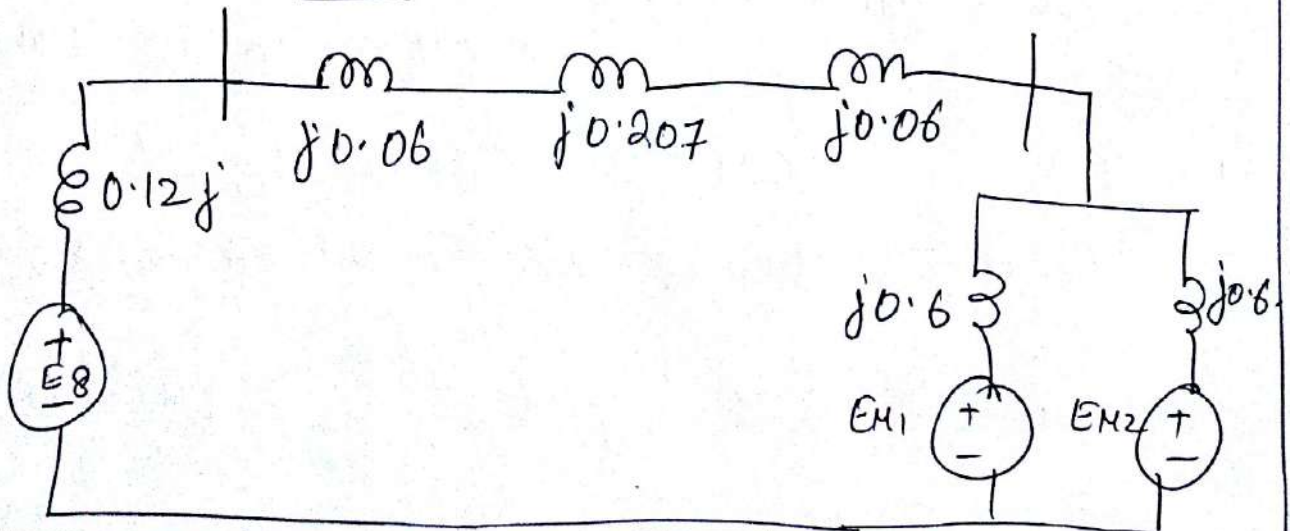 j0.06 j0.207 j0.06
0.12j
j0.6 j0.6
+
E8
-
EM1 + - EM2 + -